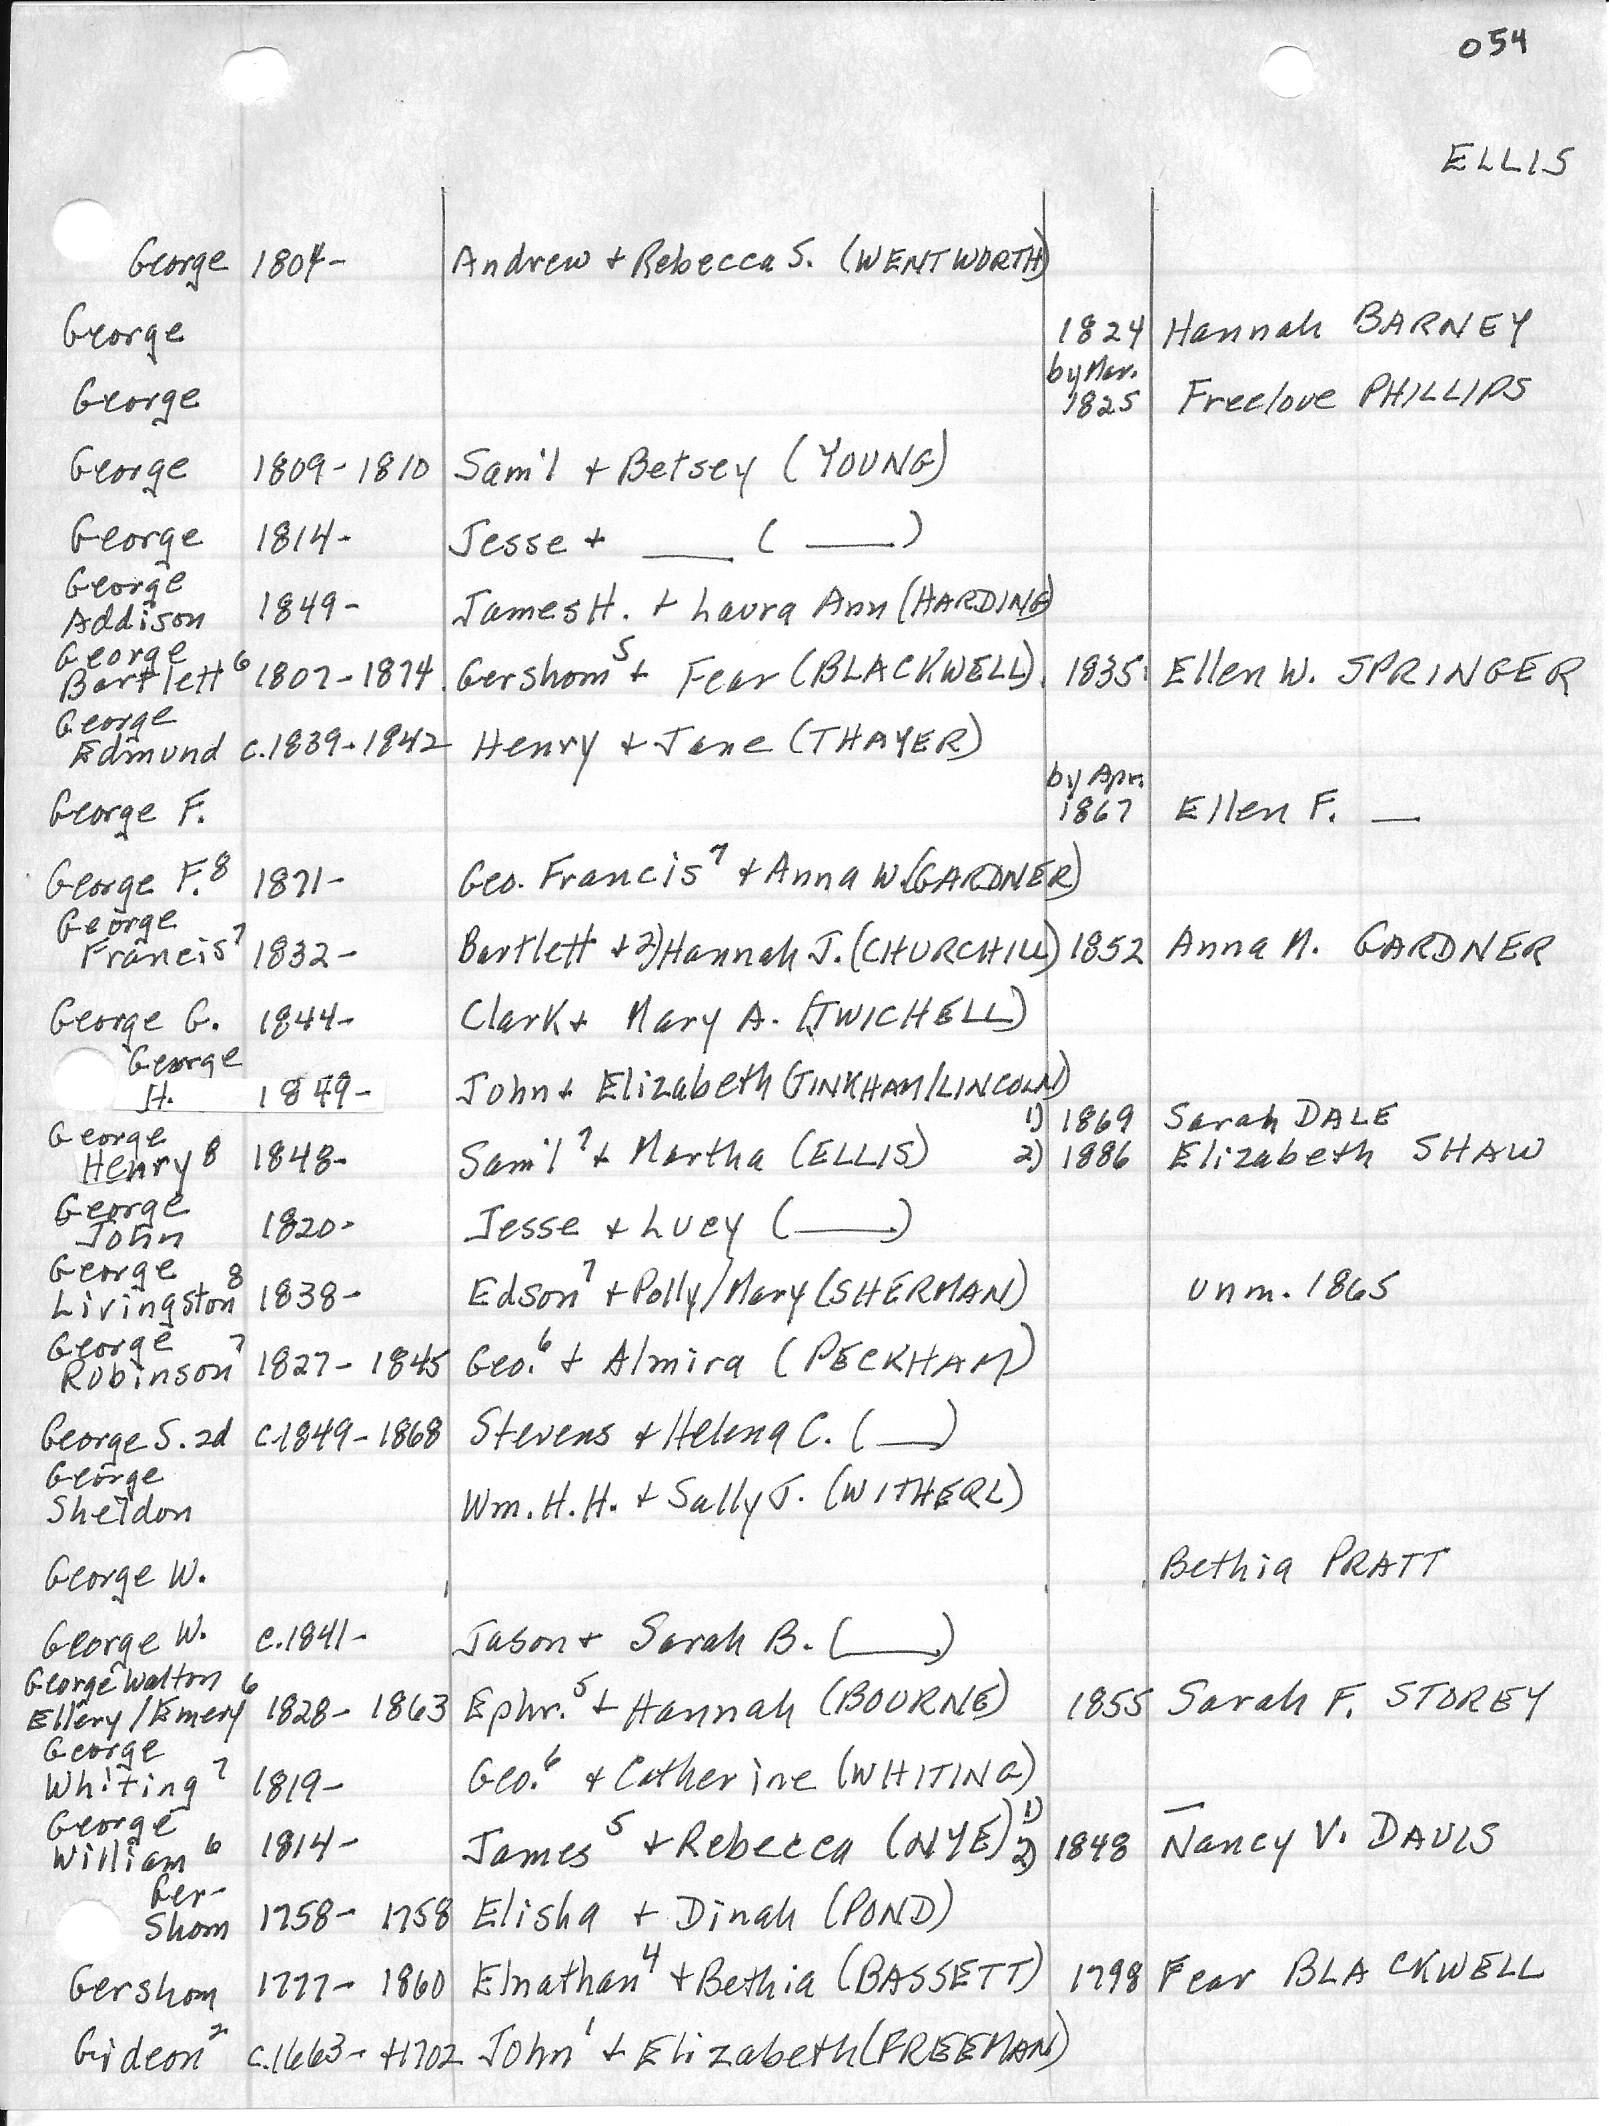 054
ELLIS
George 1804- Andrew + Rebecca S. (WENTWORTH)
George 1824 Hannah BARNEY
by Mar.
George 1825 Freelove PHILLIPS
George 1809-1810 Sam'l + Betsey (YOUNG)
George 1814- Jesse + ___ ( ___ )
George
Addison 1849- James H. + Laura Ann (HARDING)
George
Bartlett⁶ 1807-1874 Gershom⁵ + Fear (BLACKWELL) 1835 Ellen W. SPRINGER
George
Edmund c.1839-1842 Henry + Jane (THAYER)
by Apr.
George F. 1867 Ellen F. —
George F.⁸ 1871- Geo. Francis⁷ + Anna W. (GARDNER)
George
Francis⁷ 1832- Bartlett + 2) Hannah J. (CHURCHILL) 1852 Anna M. GARDNER
George G. 1844- Clark + Mary A. (TWICHELL)
George
H. 1849- John + Elizabeth (TINKHAM/LINCOLN)
George 1) 1869 Sarah DALE
Henry⁸ 1848- Sam'l⁷ + Martha (ELLIS) 2) 1886 Elizabeth SHAW
George
John 1820- Jesse + Lucy ( ___ )
George
Livingston⁸ 1838- Edson⁷ + Polly/Mary (SHERMAN) unm. 1865
George
Robinson⁷ 1827-1845 Geo.⁶ + Almira (PECKHAM)
George S. 2d c.1849-1868 Stevens + Helena C. ( ___ )
George
Sheldon Wm. H. H. + Sally J. (WITHERL)
George W. Bethia PRATT
George W. c.1841- Jason + Sarah B. ( ___ )
George Walton
Ellery/Emery⁶ 1828-1863 Ephr.⁵ + Hannah (BOURNE) 1855 Sarah F. STOREY
George
Whiting⁷ 1819- Geo.⁶ + Catherine (WHITING)
George 1) —
William⁶ 1814- James⁵ + Rebecca (NYE) 2) 1848 Nancy V. DAVIS
Ger-
Shom 1758-1758 Elisha + Dinah (POND)
Gershom 1777-1860 Elnathan⁴ + Bethia (BASSETT) 1798 Fear BLACKWELL
Gideon² c.1663-+1702 John¹ + Elizabeth (FREEMAN)